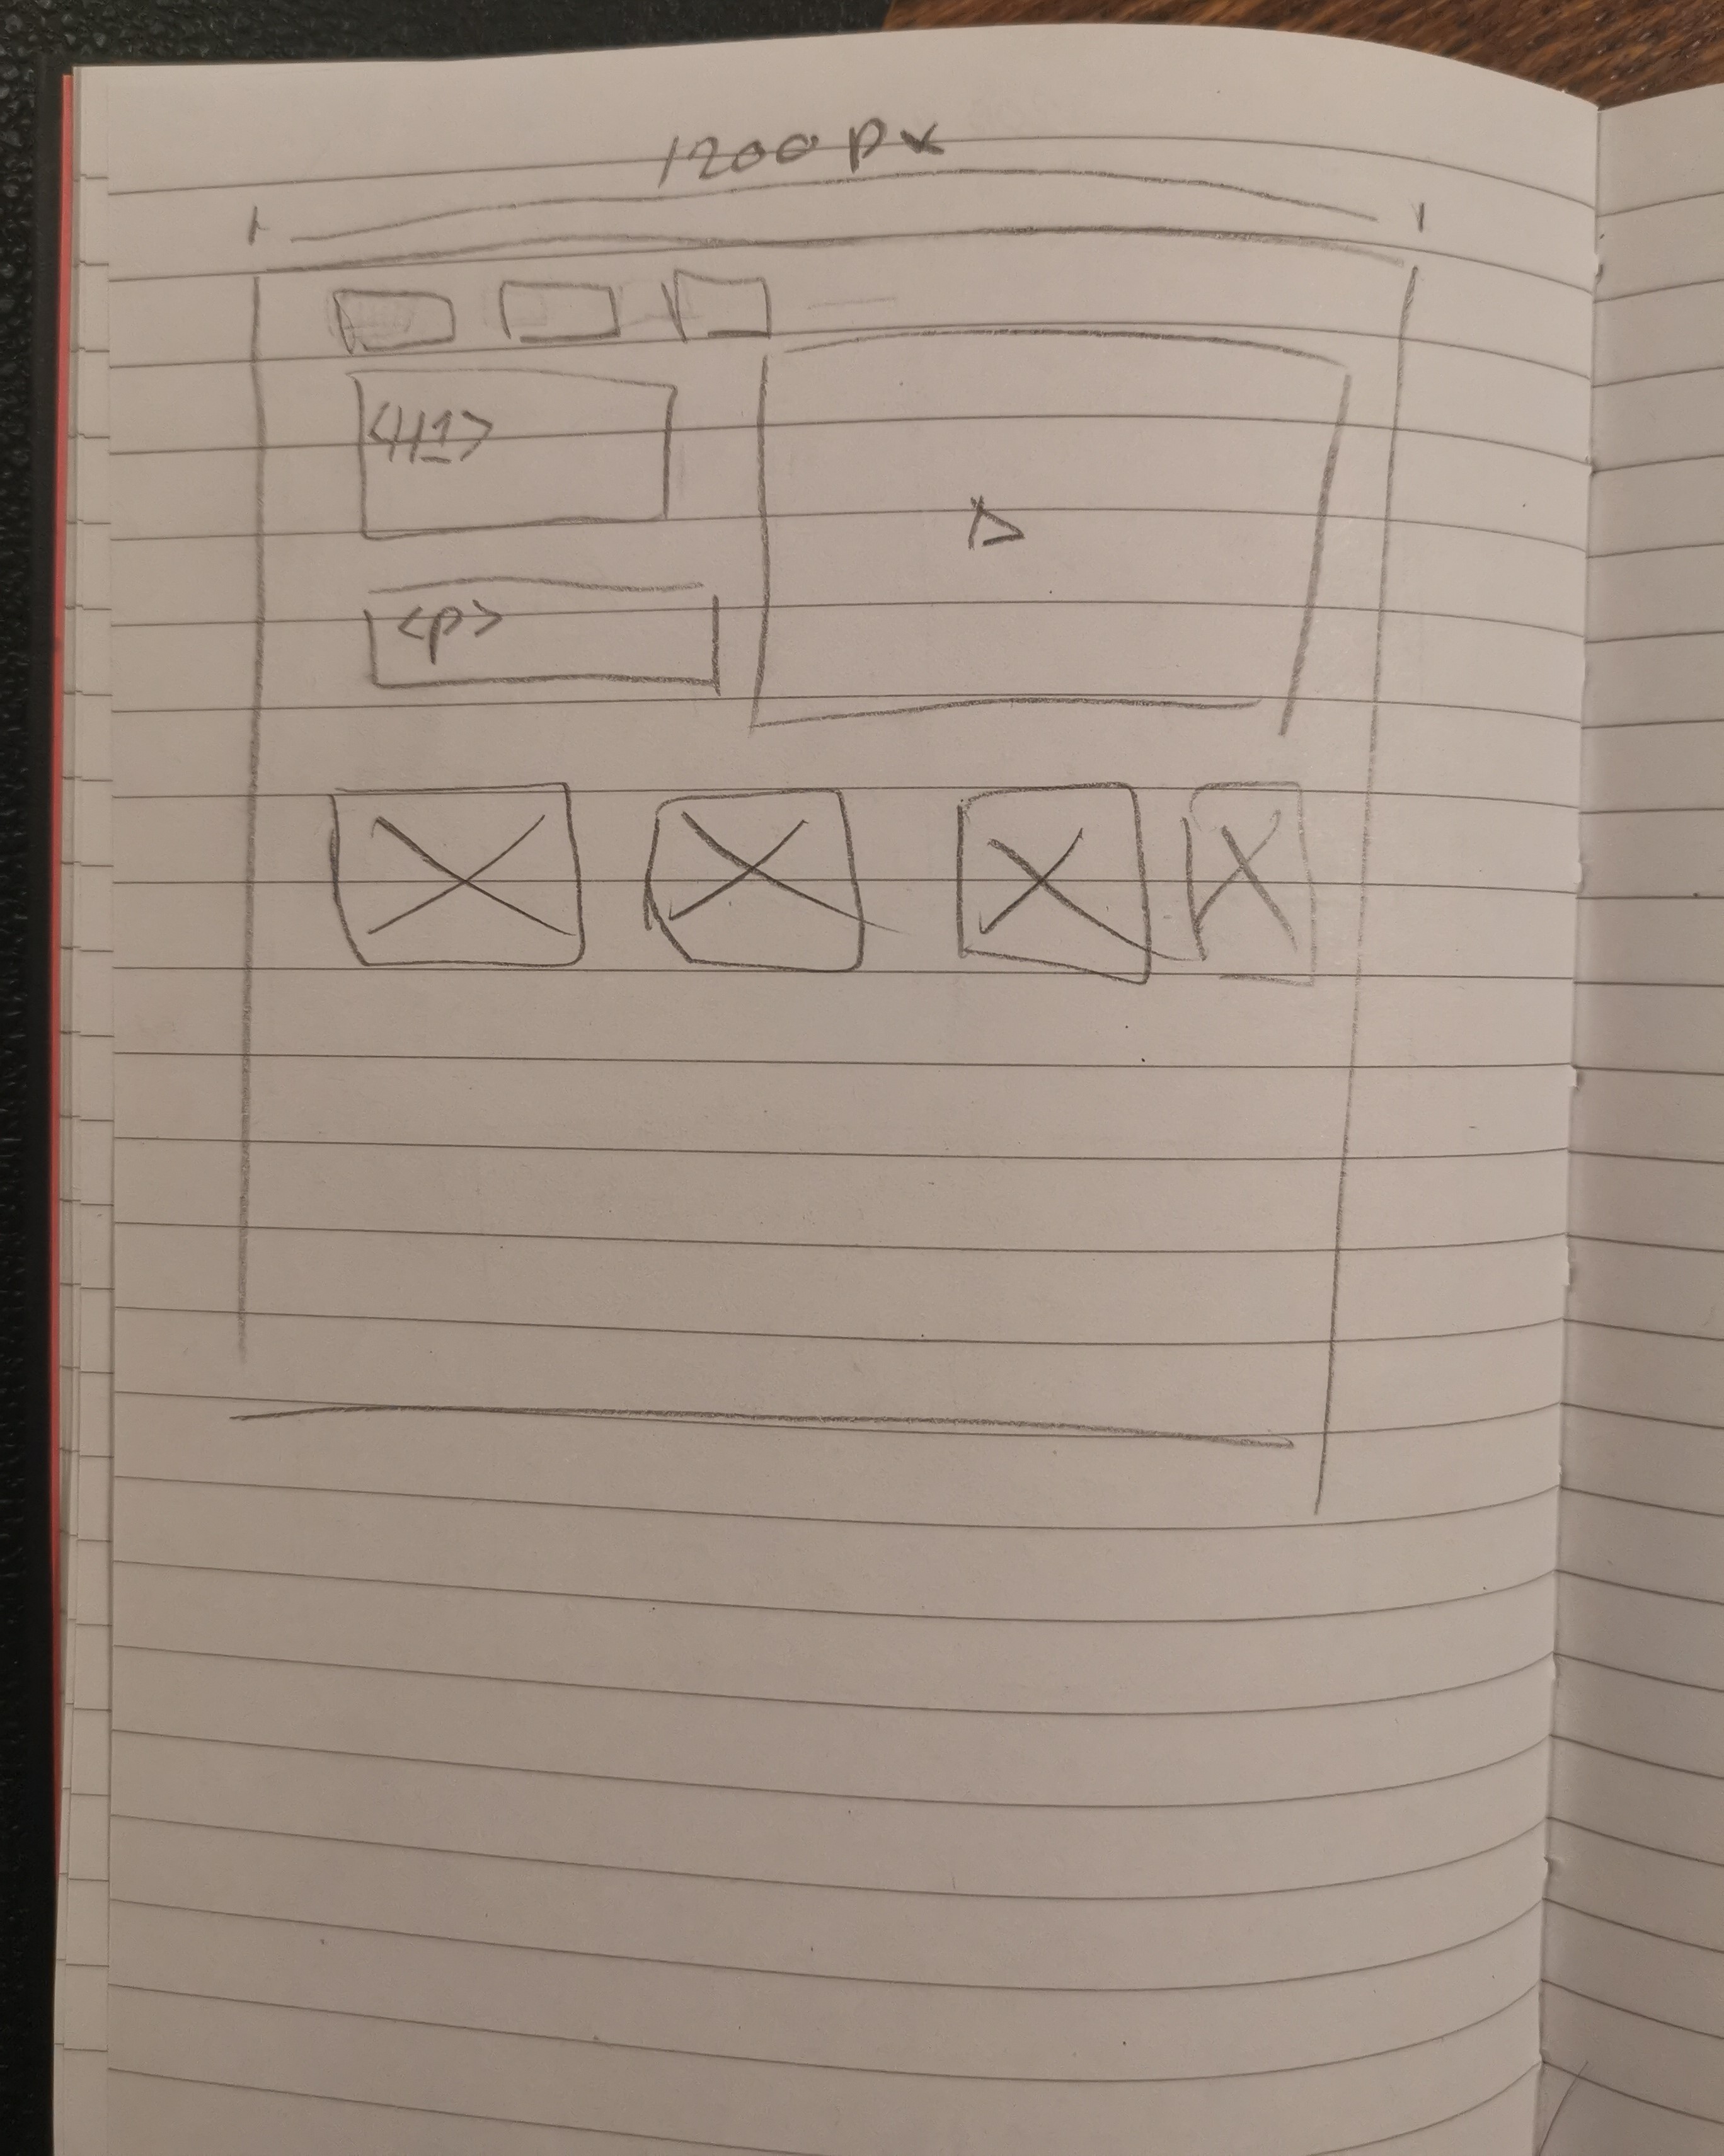 1200 px
<H1>
<p>